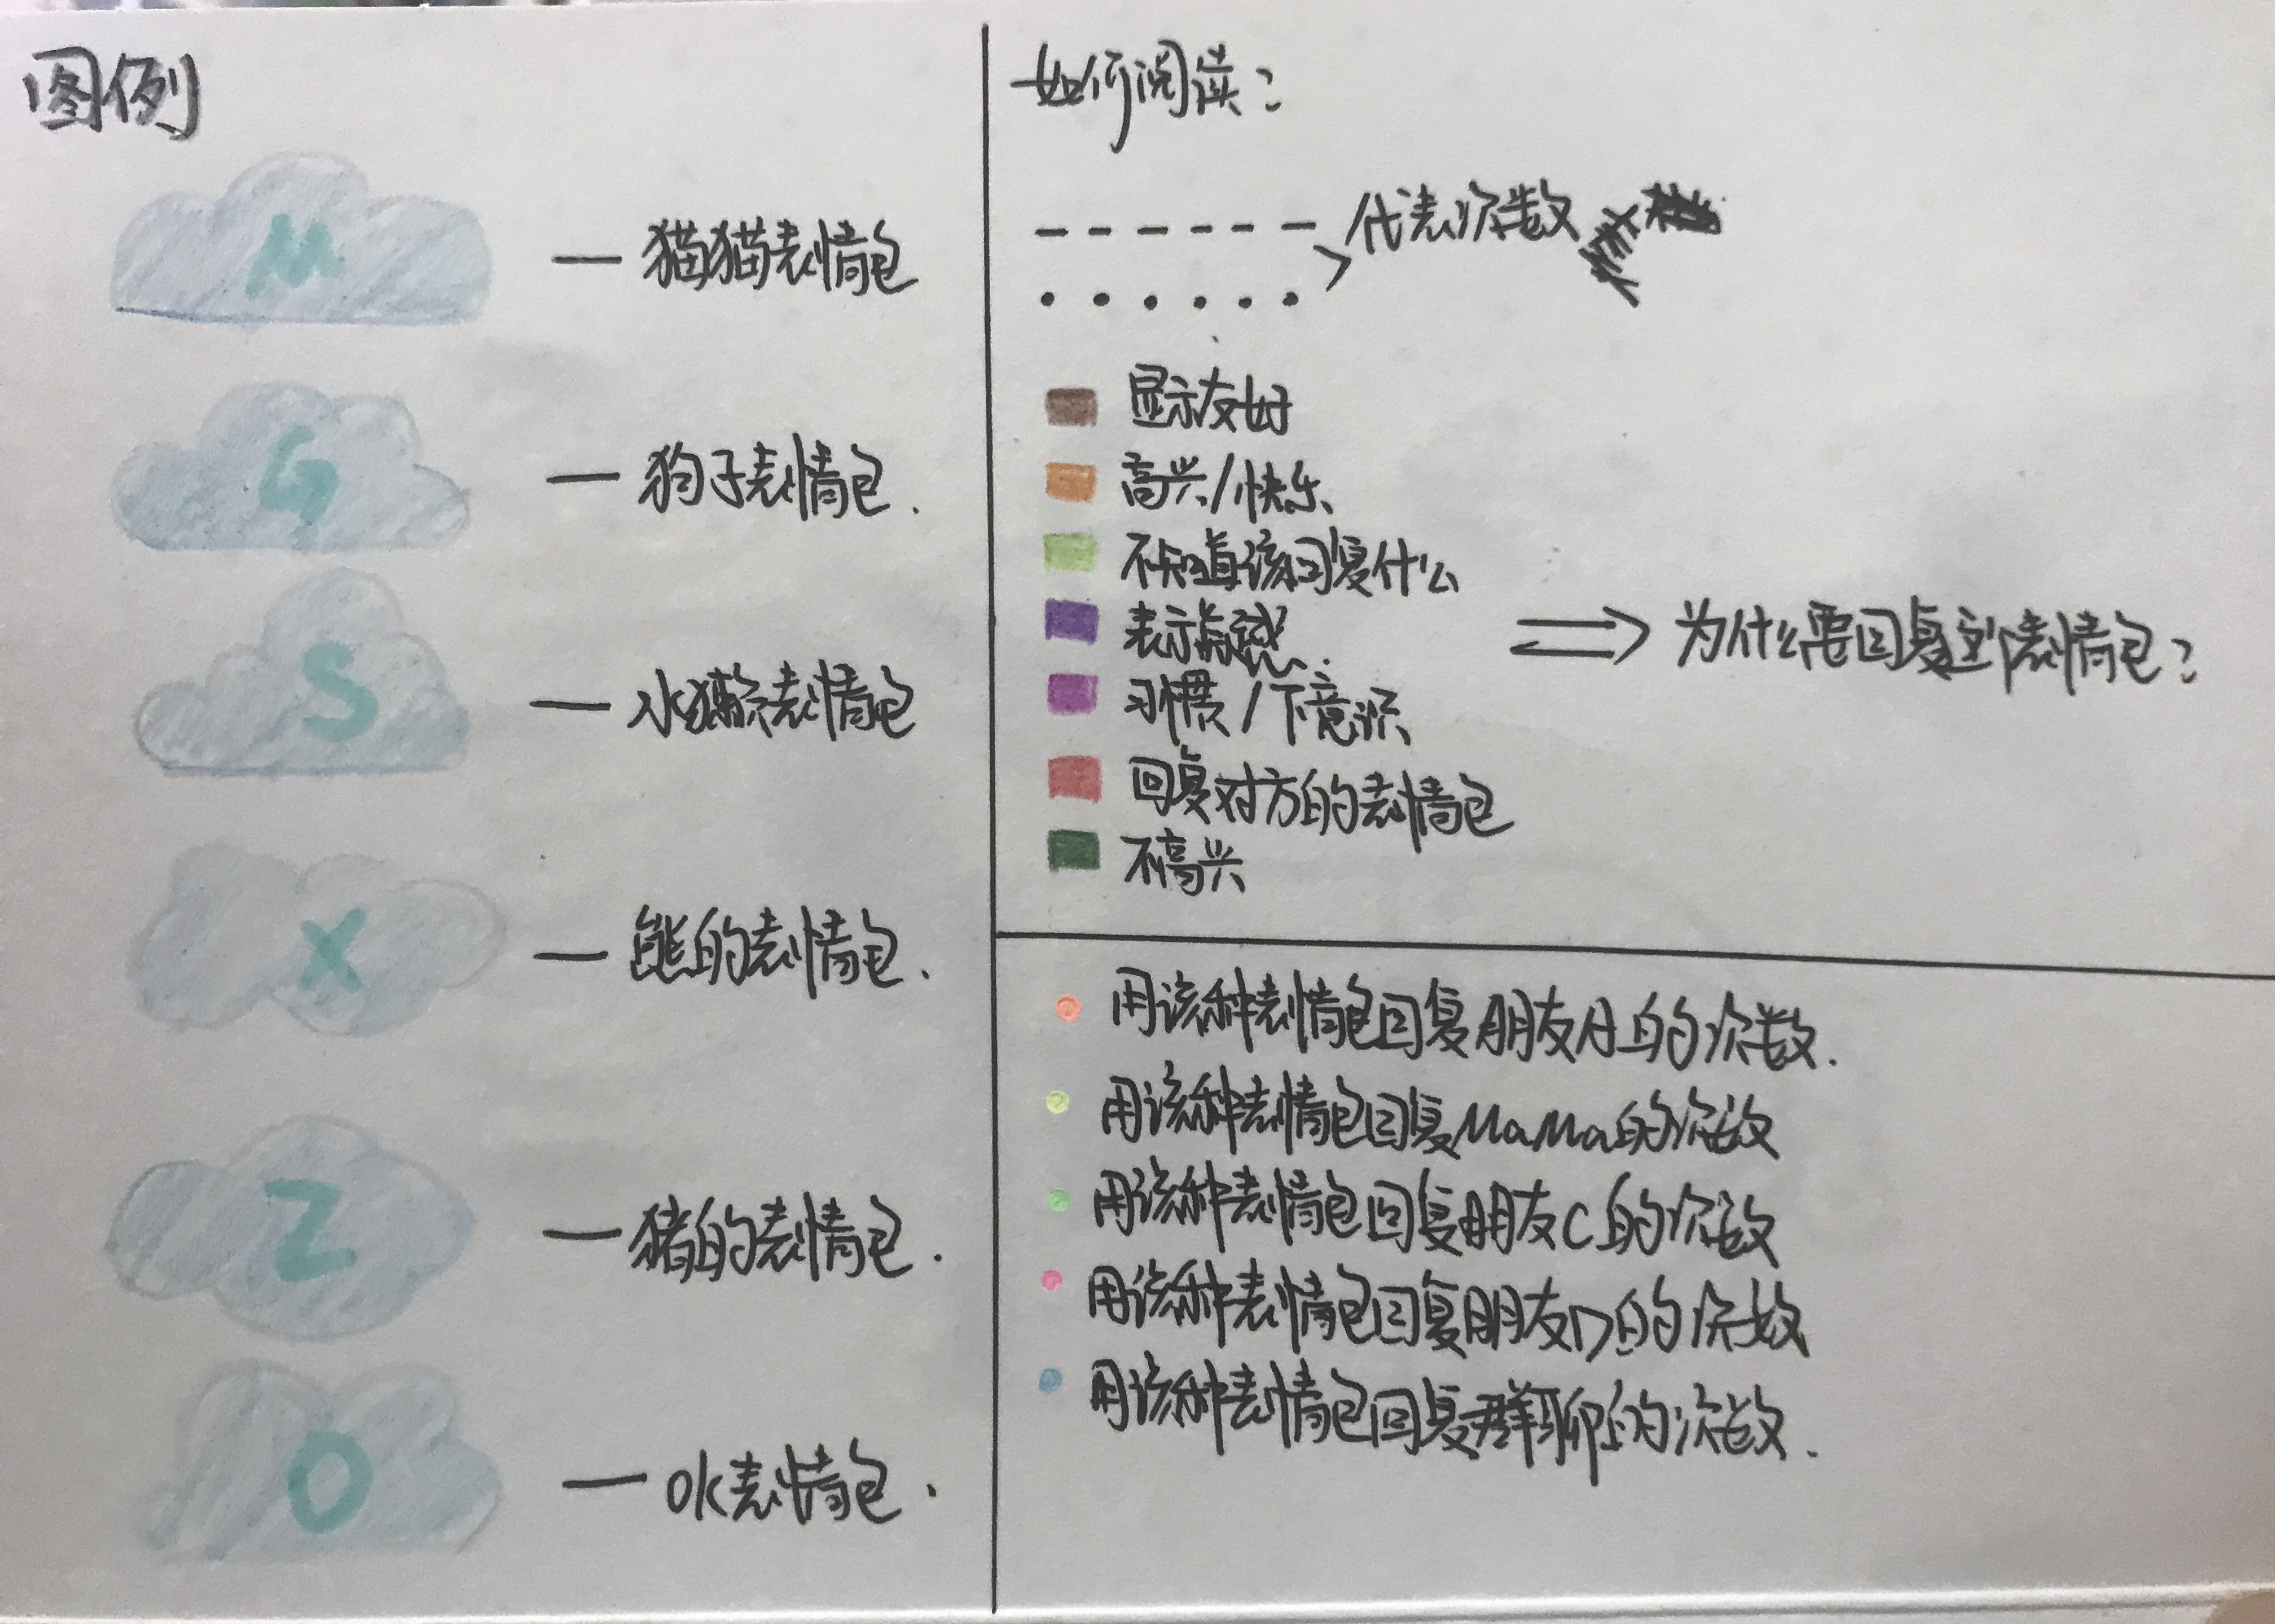 图例
M — 猫猫表情包
G — 狗子表情包.
S — 水獭表情包
X — 熊的表情包.
Z — 猪的表情包.
O — Ok表情包.
如何阅读?
代表次数
显示友好
高兴/快乐
不知道该回复什么
表示
习惯/下意识
回复对方的表情包
不高兴
为什么要回复这个表情包?
用该种表情包回复朋友A的次数.
用该种表情包回复MaMa的次数
用该种表情包回复朋友C的次数
用该种表情包回复朋友D的次数
用该种表情包回复群聊的次数.